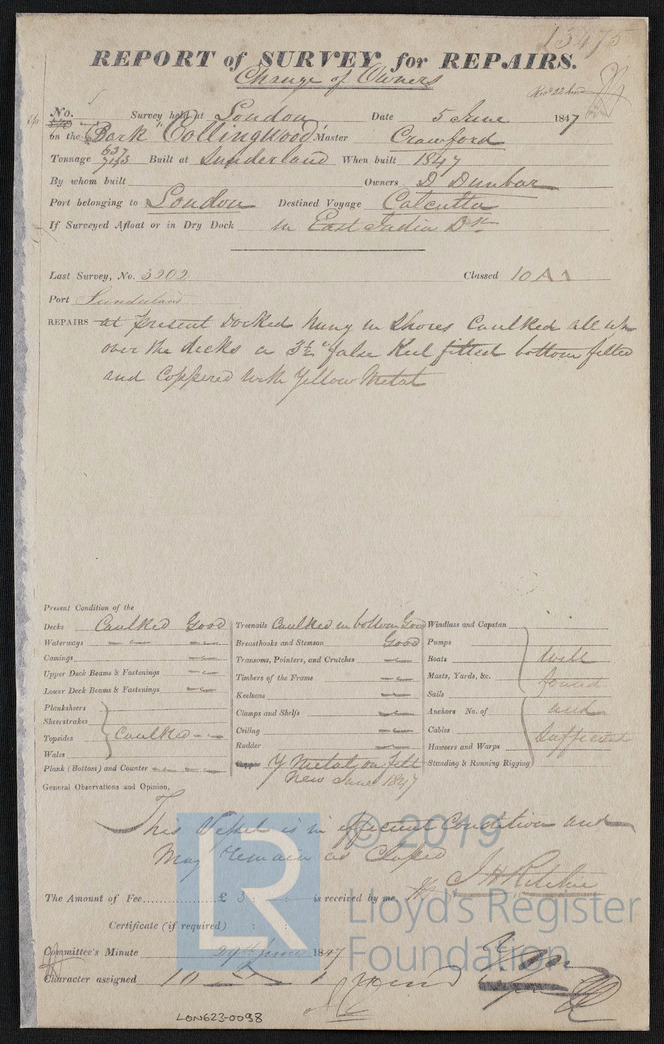 13475
REPORT of SURVEY for REPAIRS.
Change of Owners
No. Survey held at London Date 5 June 1847
on the Bark "Collingwood" Master Crawford
Tonnage 637 743 Built at Sunderland When built 1847
By whom built Owners D Dunbar
Port belonging to London Destined Voyage Calcutta
If Surveyed Afloat or in Dry Dock in East India Dk
Last Survey, No. 3202 Classed 10 A 1
Port Sunderland
REPAIRS at present Docked hung in Shores Caulked all
over the decks a 3½ " false Keel fitted bottom felted
and Coppered with Yellow Metal
Present Condition of the
Decks Caulked Good
Waterways
Comings
Upper Deck Beams & Fastenings
Lower Deck Beams & Fastenings
Planksheers
Sheerstrakes
Topsides Caulked
Wales
Plank (Bottom) and Counter
Treenails Caulked in bottom Good
Breasthooks and Stemson Good
Transoms, Pointers, and Crutches
Timbers of the Frame
Keelsons
Clamps and Shelfs
Ceiling
Rudder
Y Metal on felt
New June 1847
Windlass and Capstan
Pumps
Boats
Masts, Yards, &c.
Sails
Anchors No. of
Cables
Hawsers and Warps
Standing & Running Rigging
Well
found
and
Sufficient
General Observations and Opinion,
This Vessel is in efficient Condition and
May remain as Classed
J H Ritchie
The Amount of Fee £ is received by me,
Certificate (if required) :
Committee's Minute June 1847
Character assigned 10
LON623-0098
© 2019
Lloyd's Register
Foundation
LR